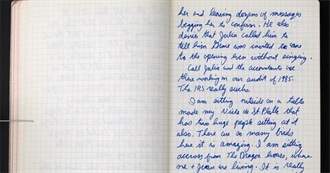 her and leaving dozens of messages
begging her to confirm. He also
denies that Julia called him to
tell him Grace was invited to come
to the opening even without singing.
Call Julia and the accountants we
there working on our audit of 1985.
The IRS really sucks.
I am sitting outside on a table
made by Niki de St. Phalle that
has two huge people sitting at it
also. There are so many birds
here it is amazing. I am sitting
across from The Dragon house, where
me + Jesse are living. It is really